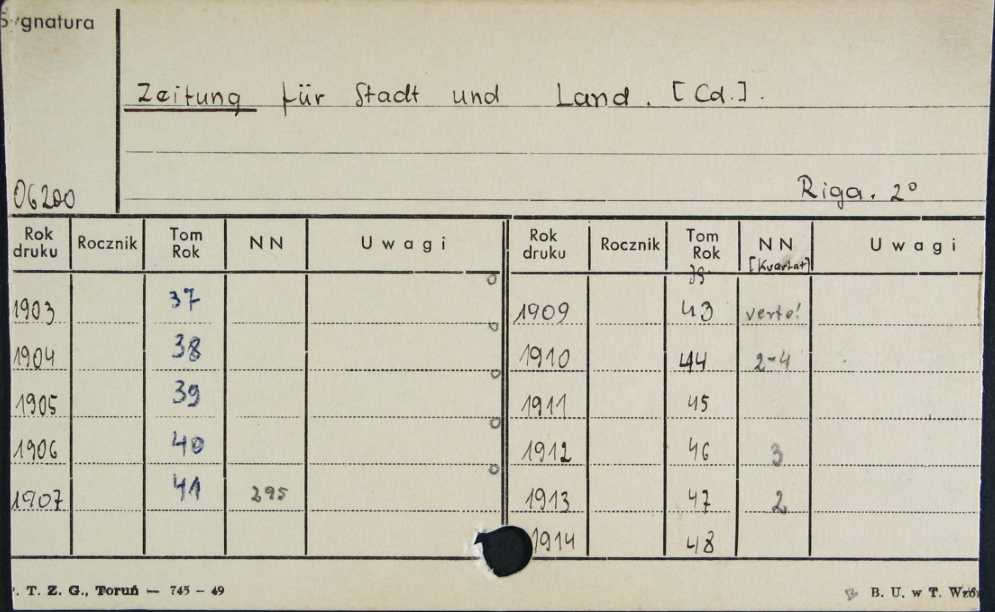 Sygnatura
Zeitung für Stadt und Land. [Cd.].
06200
Riga. 2°
Rok druku Rocznik Tom Rok NN Uwagi Rok druku Rocznik Tom Rok NN [Kvartał] Uwagi
1903 37 1909 43 verte!
1904 38 1910 44 2-4
1905 39 1911 45
1906 40 1912 46 3
1907 41 295 1913 47 2
1914 48
. T. Z. G., Toruń — 745 – 49
B. U. w T.